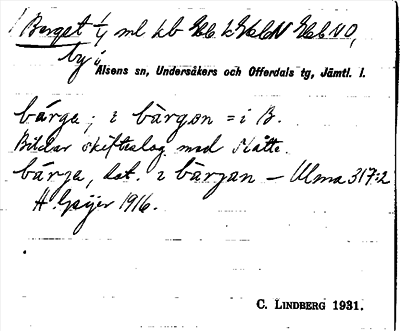 Berget 1/4 ml
by i
Alsens sn, Undersåkers och Offerdals tg, Jämtl. l.
bárga; i bàrgon = i B.
Bildar skifteslag med Slåtte.
bárja, dat. i bàrjan – Ulma 317:2
H. Geijer 1916.
C. LINDBERG 1931.